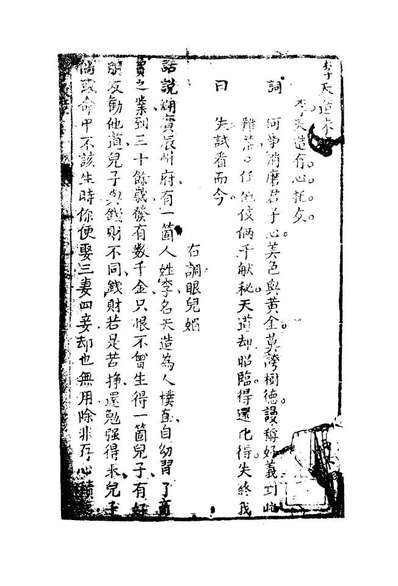 李天造
李天造有心托友
詞　何事消磨君子心美色與黃金莫誇樹德謾稱好義到此
難禁　任他伎倆千般秘天道却昭臨得還化得失終我
曰　失試看而今
右調眼兒媚
話說湖廣辰州府有一箇人姓李名天造為人樸直自幼習了商
賈之業到三十餘歲發有數千金只恨不曾生得一箇兒子有好
朋友勸他道兒子與錢財不同錢財若是苦掙還勉强得來兒子
倘或命中不該生時你便娶三妻四妾却也無用除非存心積